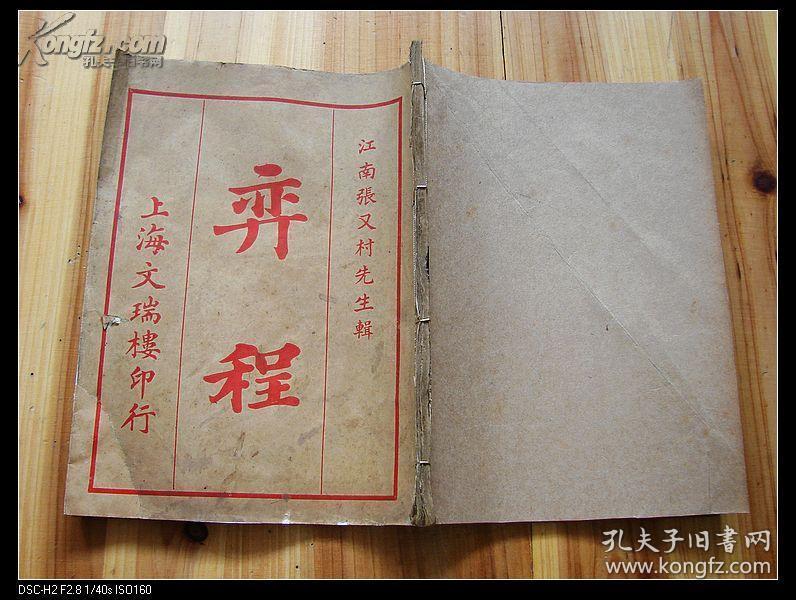 Kongfz.com
孔夫子旧书网
江南張又村先生輯
弈程
上海文瑞樓印行
孔夫子旧书网
www.kongfz.com
DSC-H2 F2.8 1/40s ISO160